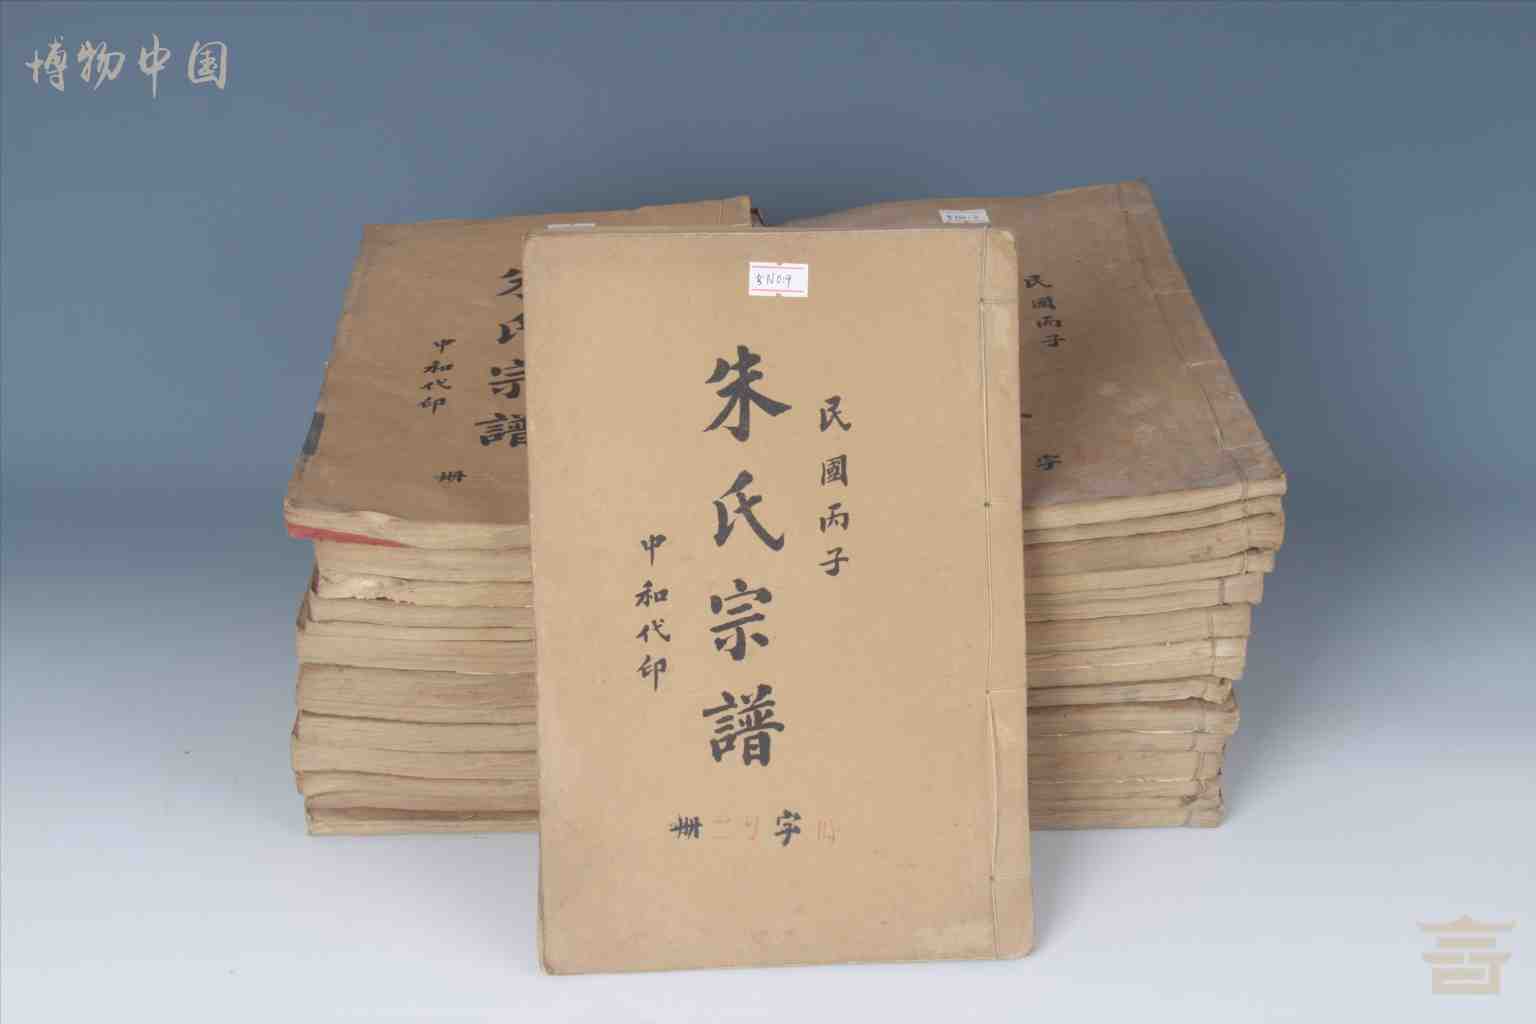 博物中国
朱氏宗譜
中和代印
册
民國丙子
朱氏宗譜
中和代印
字
册
民國丙子
字